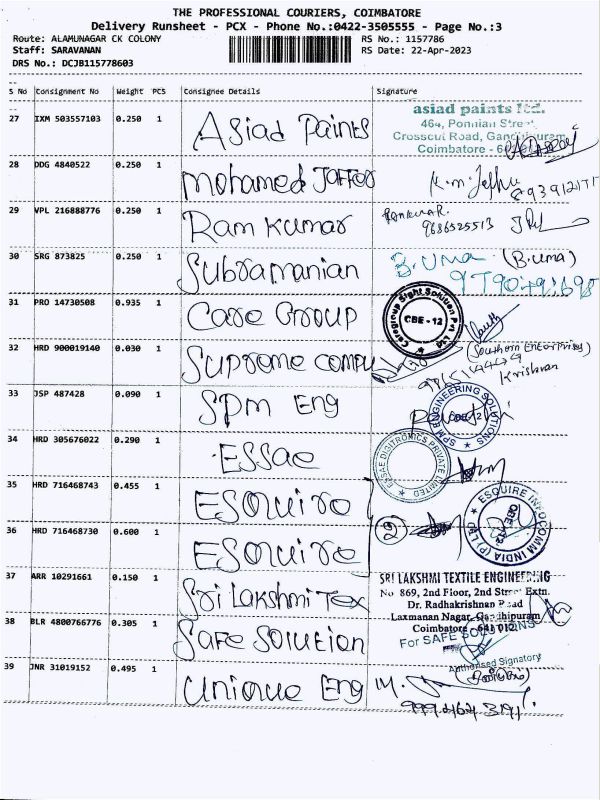 THE PROFESSIONAL COURIERS, COIMBATORE
Delivery Runsheet - PCX - Phone No.:0422-3505555 - Page No.:3
Route: ALAMUNAGAR CK COLONY RS No.: 1157786
Staff: SARAVANAN RS Date: 22-Apr-2023
DRS No.: DCJB115778603
S No Consignment No Weight PCS Consignee Details Signature
27 IXM 503557103 0.250 1 Asiad Paints
asiad paints ltd.
464, Ponnian Street,
Crosscut Road, Gandhipuram
Coimbatore - 6
28 DDG 4840522 0.250 1 Mohamed Jaffer K.m. Jaffer
29 VPL 216888776 0.250 1 Ram Kumar Ramkumar. 9686525513
30 SRG 873825 0.250 1 Subramanian B. Uma (B.Uma)
31 PRO 14730508 0.935 1 Care Group
Caregroup Sight Solution Pvt Ltd
CBE - 12
32 HRD 900019140 0.030 1 Supreme Compu (Southern Enterprises)
Krishnan
33 JSP 487428 0.090 1 SPM Eng
SPM ENGINEERING SOLUTIONS
34 HRD 305676022 0.290 1 ESSae
ESSAE DIGITRONICS PRIVATE LIMITED
35 HRD 716468743 0.455 1 Esquire
36 HRD 716468730 0.600 1 Esquire (2)
ESQUIRE INFOCOMM INDIA (P) LTD
CBE-12
37 ARR 10291661 0.150 1 Sri Lakshmi Tex
SRI LAKSHMI TEXTILE ENGINEERING
No 869, 2nd Floor, 2nd Street Extn.
Dr. Radhakrishnan Road
Laxmanan Nagar, Gandhipuram
Coimbatore - 641 012
38 BLR 4800766776 0.305 1 Safe Solution
For SAFE SOLUTIONS
Authorised Signatory
39 JNR 31019152 0.495 1 Unique Eng M.